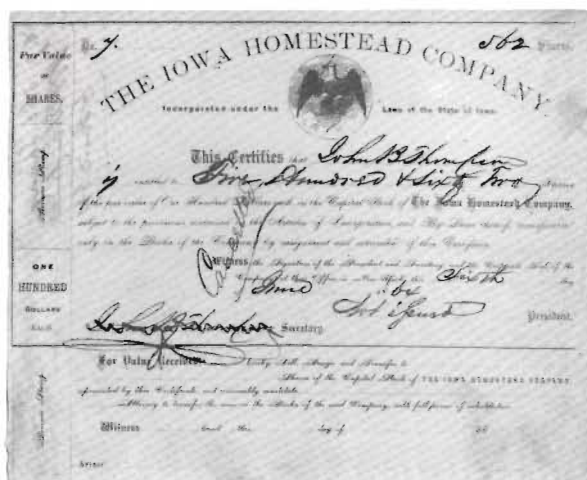 No. 7.
562 Shares.
Par Value
OF
SHARES.
THE IOWA HOMESTEAD COMPANY
Incorporated under the Laws of the State of Iowa.
This Certifies that John B Thompson
is entitled to Five Hundred & Sixty Two Shares
of the par value of One Hundred Dollars each in the Capital Stock of The Iowa Homestead Company,
subject to the provisions contained in the Articles of Incorporation and By Laws thereof, transferable
only in the Books of the Company by assignment and surrender of this Certificate.
Cancelled
Witness the Signatures of the President and Secretary and the Corporate Seal of the
Company at their Office in this Sixth day
June
President.
Secretary.
ONE
HUNDRED
DOLLARS
EACH
For Value Received hereby Sell, Assign and Transfer to
Shares of the Capital Stock of THE IOWA HOMESTEAD COMPANY
represented by this Certificate and irrevocably constitute
Attorney to transfer the same on the Books of the said Company, with full power of substitution
Witness hand this day of 18